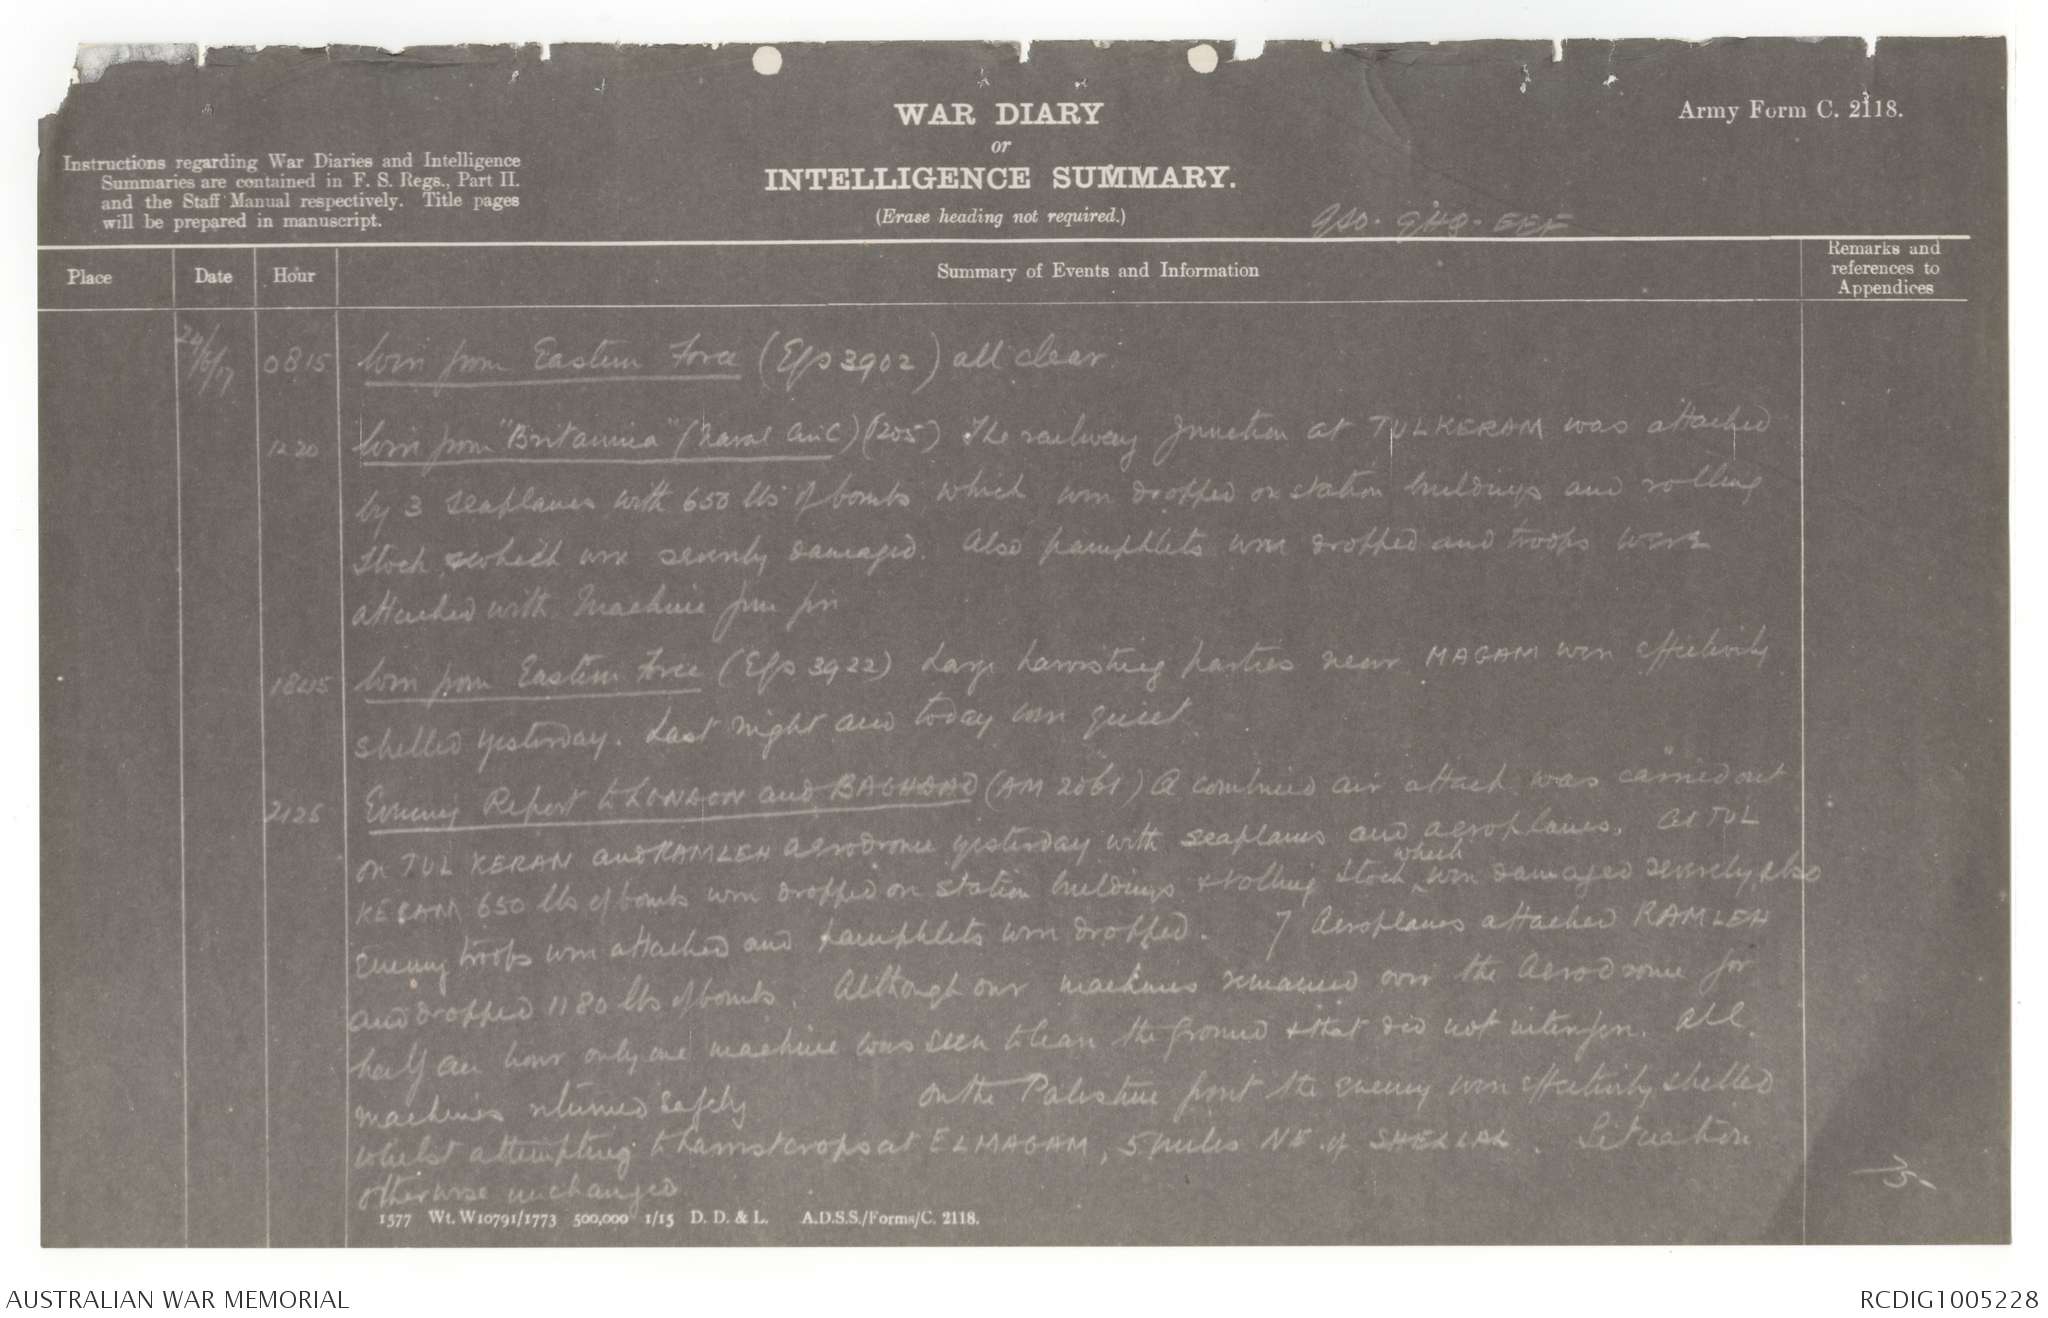 WAR DIARY
or
INTELLIGENCE SUMMARY.
(Erase heading not required.)
Army Form C. 2118.
Instructions regarding War Diaries and Intelligence
Summaries are contained in F. S. Regs., Part II.
and the Staff Manual respectively. Title pages
will be prepared in manuscript.
GSO. GHQ. EEF
Place
Date
Hour
Summary of Events and Information
Remarks and
references to
Appendices
24/6/17 0815 Wire from Eastern Force (EGs 3902) all clear.
1220 Wire from "Britannia" (Naval Air C) (1205) The railway Junction at TULKERAM was attacked
by 3 seaplanes with 650 lbs of bombs which were dropped on station buildings and rolling
stock which were severely damaged. Also pamphlets were dropped and troops were
attacked with Machine gun fire
1845 Wire from Eastern Force (EGs 3922) Large harvesting parties near MAGAM were effectively
shelled yesterday. Last night and today were quiet
2125 Evening Report to LONDON and BAGHDAD (AM 2061) A combined air attack was carried out
on TUL KERAN and RAMLEH aerodrome yesterday with seaplanes and aeroplanes. At TUL
KERAM 650 lbs of bombs were dropped on station buildings & rolling stock which were damaged severely, also
enemy troops were attacked and pamphlets were dropped. 7 Aeroplanes attacked RAMLEH
and dropped 1180 lbs of bombs. Although our machines remained over the Aerodrome for
half an hour only one machine was seen to leave the ground & that did not interfere. All
machines returned safely On the Palestine front the enemy were effectively shelled
whilst attempting to harvest crops at EL MAGAM, 5 miles NE of SHELLAL. Situation
otherwise unchanged
1577 Wt. W10791/1773 500,000 1/15 D. D. & L. A.D.S.S./Forms/C. 2118.
AUSTRALIAN WAR MEMORIAL
RCDIG1005228